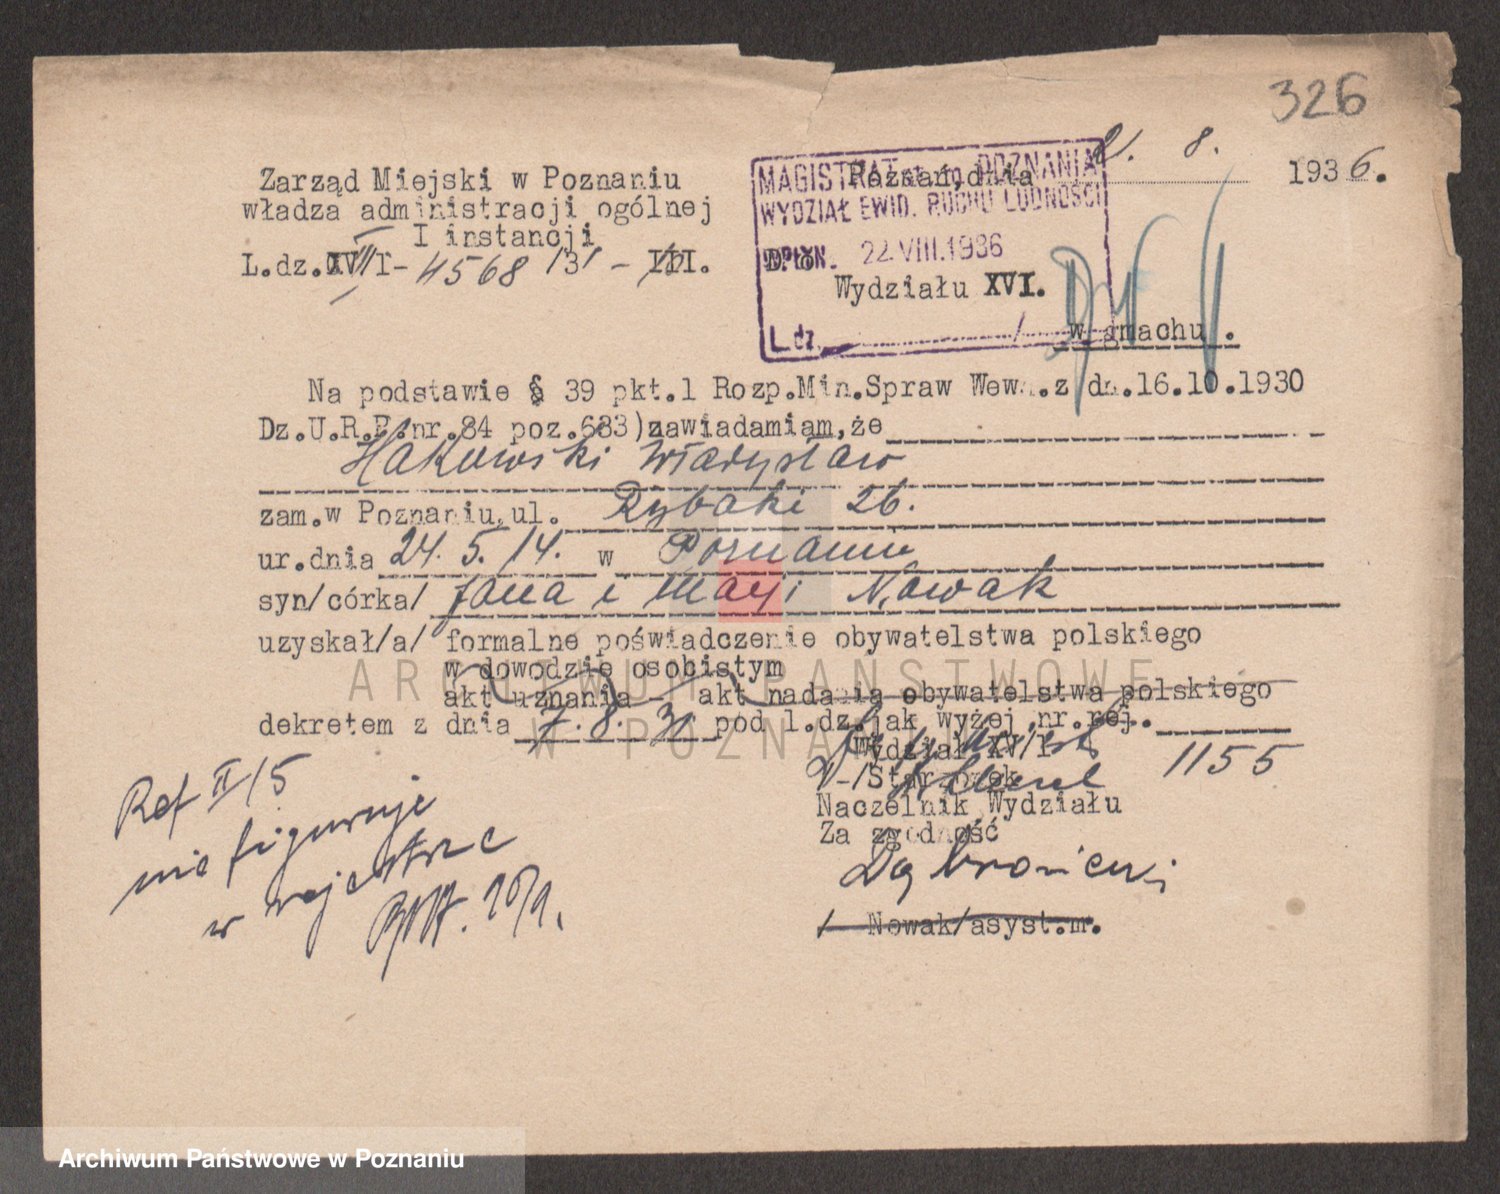 326
Zarząd Miejski w Poznaniu
władza administracji ogólnej
I instancji
L.dz. XVI/1-4568/31 - III.
MAGISTRAT st. m. POZNANIA
WYDZIAŁ EWID. RUCHU LUDNOŚCI
WPŁYN. 22.VIII.1936
L. dz.
Poznań, dnia 21. 8. 1936.
Do
Wydziału XVI.
w gmachu.
Na podstawie § 39 pkt.1 Rozp.Min.Spraw Wewn.z dn.16.10.1930
Dz.U.R.P.nr.84 poz.683)zawiadamiam,że
Hakowski Władysław
zam.w Poznaniu,ul. Rybaki 26.
ur.dnia 24. 5. 14. w Poznaniu
syn/córka/ Jana i Maryi Nowak
uzyskał/a/ formalne poświadczenie obywatelstwa polskiego
w dowodzie osobistym
akt uznania - akt nadania obywatelstwa polskiego
dekretem z dnia 7. 8. 31 pod l.dz.jak wyżej nr.rej.
Wydział XV/1 1155
Naczelnik Wydziału
Za zgodność
/-Nowak/asyst.m.
Ref II/5
nie figuruje
w rejestrze
ARCHIWUM PAŃSTWOWE
W POZNANIU
Archiwum Państwowe w Poznaniu